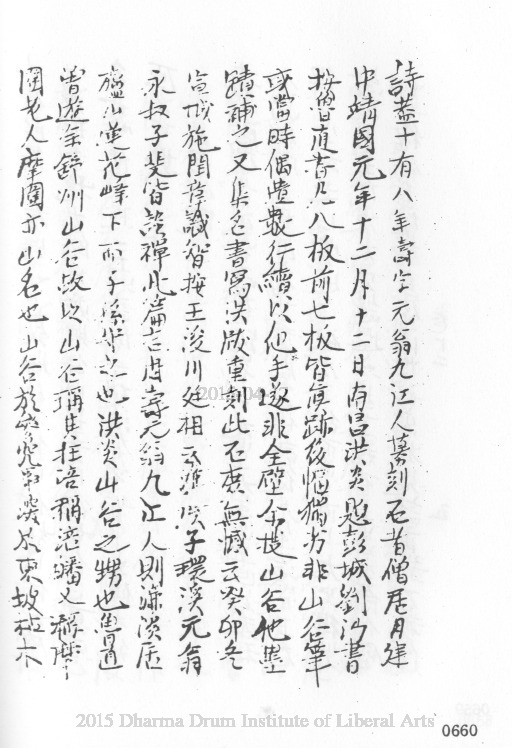 詩蓋十有八年壽字元翁九江人摹刻石者僧居月建
中靖國元年十二月十二日南昌洪炎題彭城劉沔書
按魯直書凡八板前七板皆真跡後幅猶劣非山谷筆
或當時偶遺數行續以他手遂非全璧今以山谷他墨
蹟補之又集名書寫洪跋重刻此石庶無憾云癸卯冬
宣城施閏章識智按王浚川廷相云濂溪子環溪元翁
永叔子斐皆談禪此篇言周壽元翁九江人則濂溪居
廬山蓮花峰下而子孫家之也洪炎山谷之甥也魯直
曾遊舒州山谷故以山谷稱其在涪稱涪皤又稱摩
圍老人摩圍亦山名也山谷於東坡枯木
2015 Dharma Drum Institute of Liberal Arts
0660